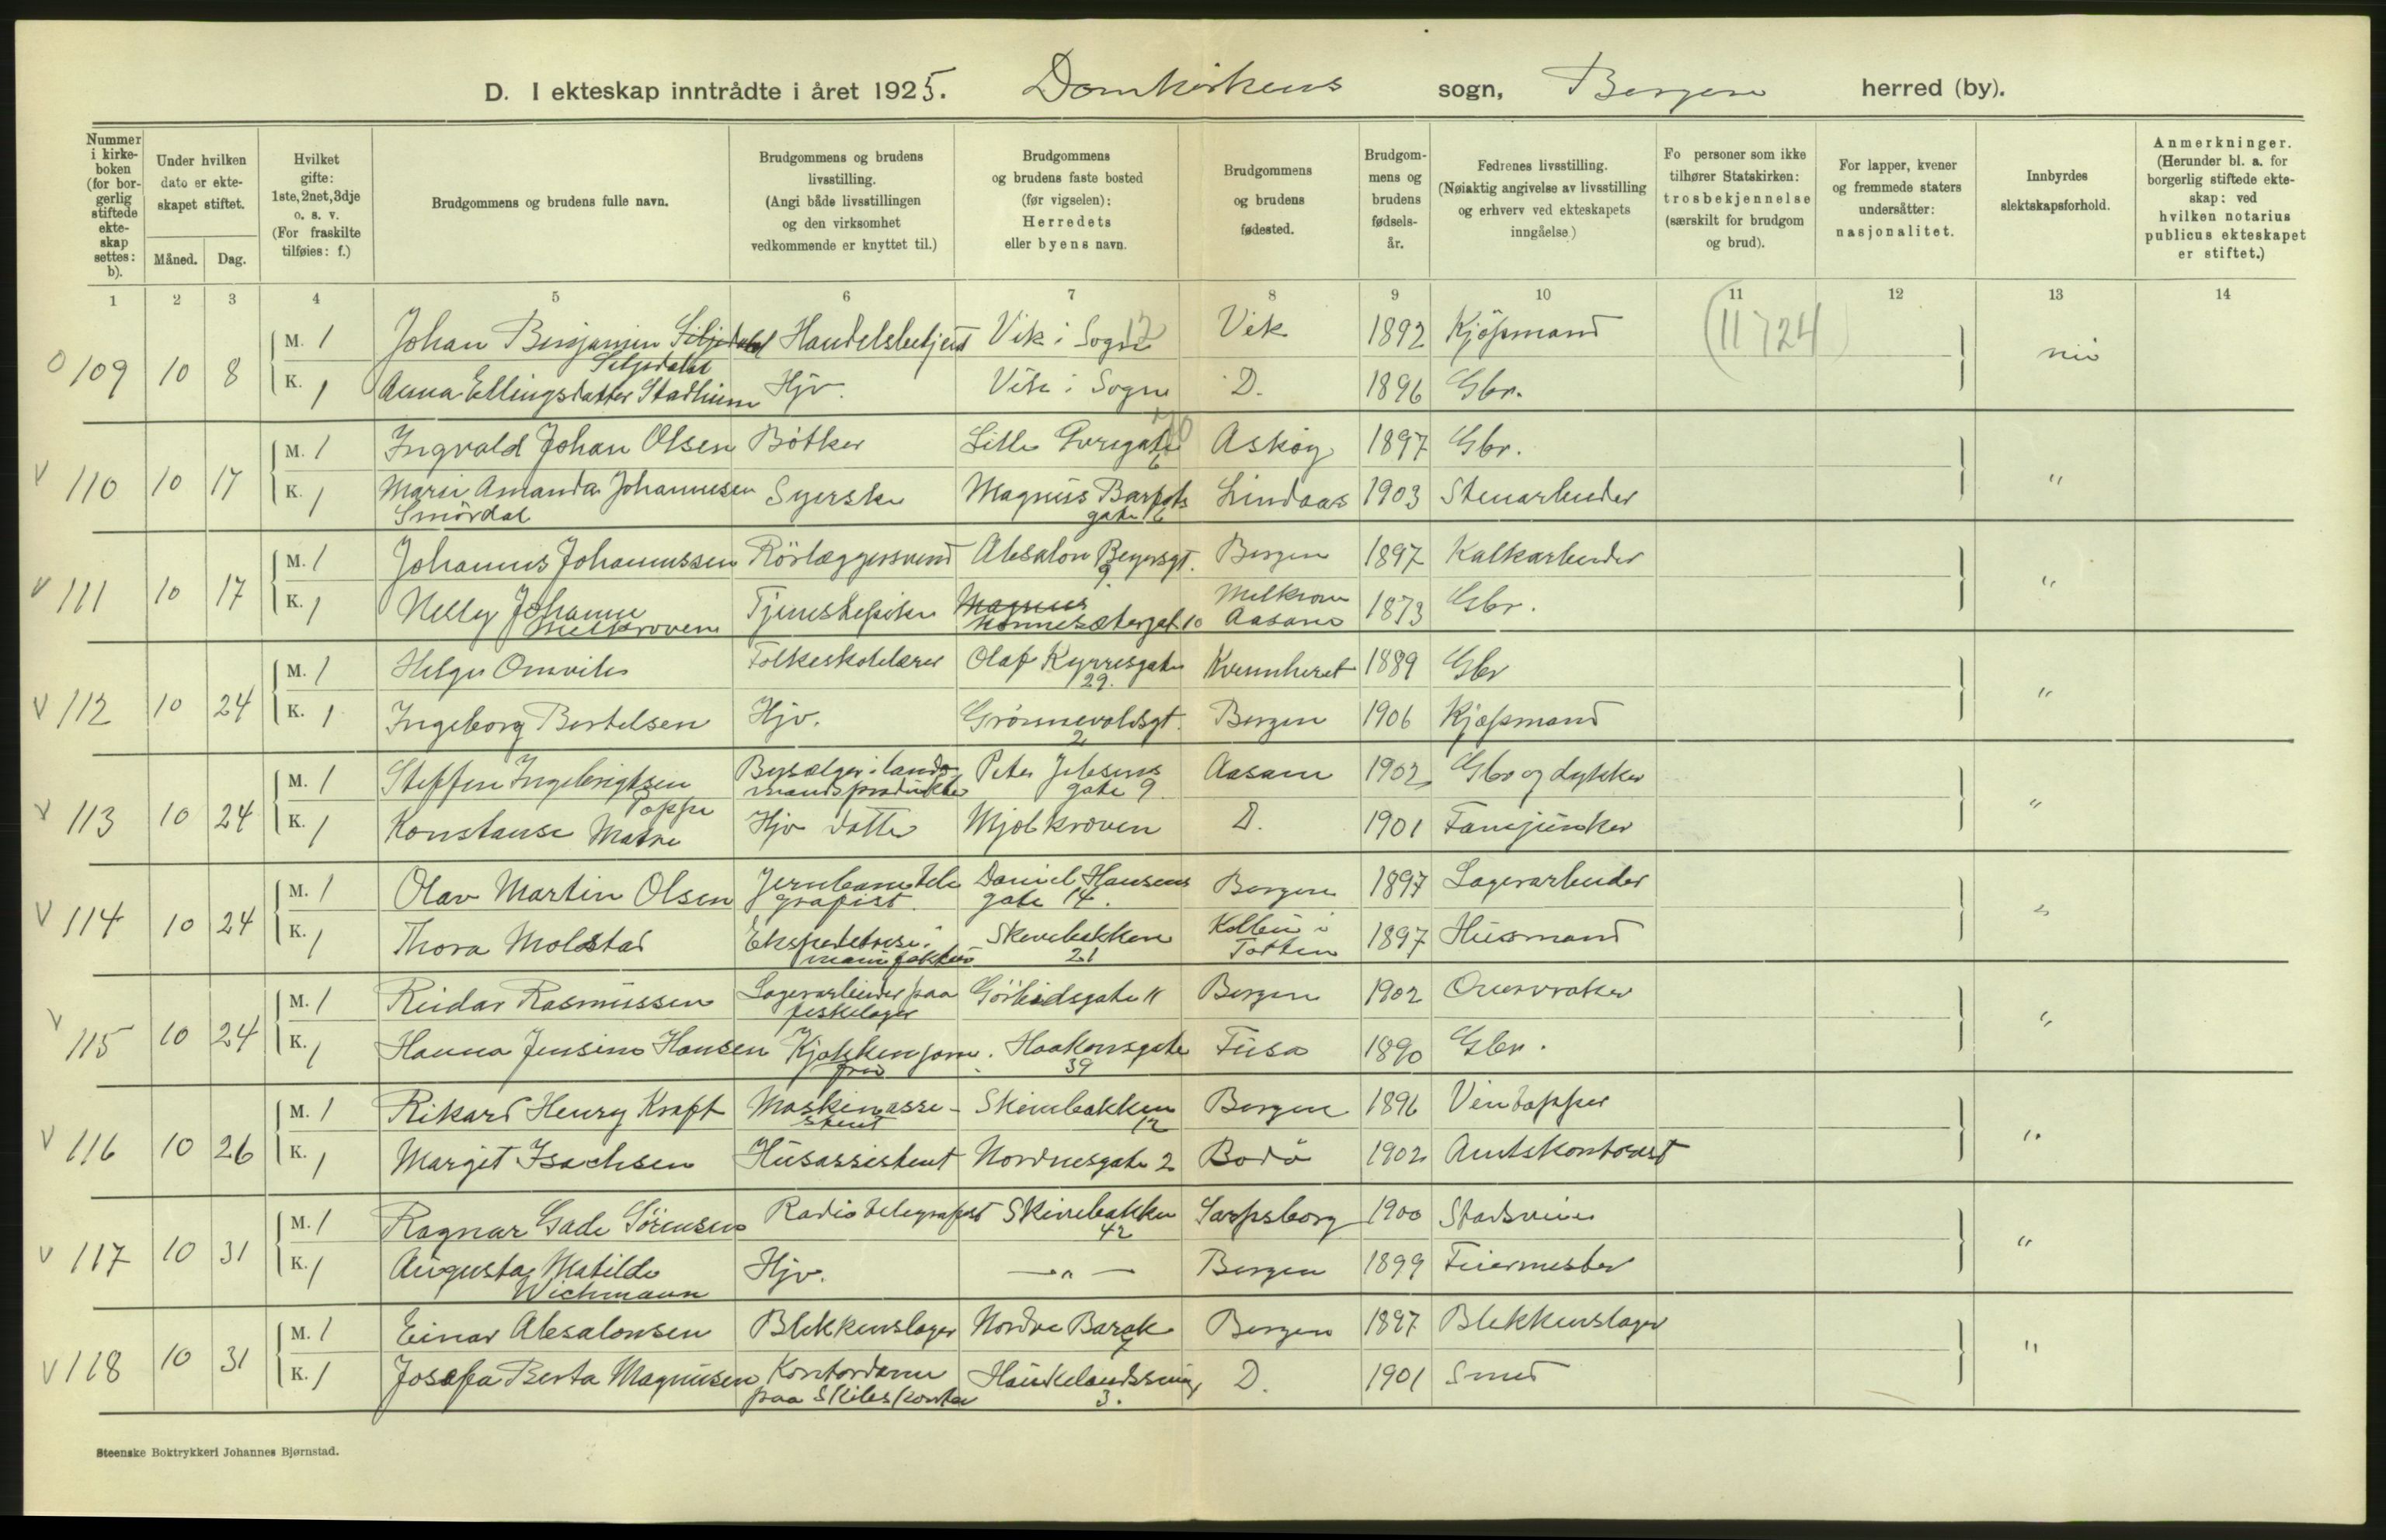 D. I ekteskap inntrådte i året 1925. Domkirkens sogn, Bergen herred (by).
Nummer i kirke-boken (for bor-gerlig stiftede ekte-skap settes: b).
Under hvilken dato er ekte-skapet stiftet.
Måned. Dag.
Hvilket gifte: 1ste, 2net, 3dje o. s. v. (For fraskilte tilføies: f.)
Brudgommens og brudens fulle navn.
Brudgommens og brudens livsstilling. (Angi både livsstillingen og den virksomhet vedkommende er knyttet til.)
Brudgommens og brudens faste bosted (før vigselen): Herredets eller byens navn.
Brudgommens og brudens fødested.
Brudgom-mens og brudens fødsels-år.
Fedrenes livsstilling. (Nøiaktig angivelse av livsstilling og erhverv ved ekteskapets inngåelse)
Fo personer som ikke tilhører Statskirken: trosbekjennelse (særskilt for brudgom og brud).
For lapper, kvener og fremmede staters undersåtter: nasjonalitet.
Innbyrdes slektskapsforhold.
Anmerkninger. (Herunder bl. a. for borgerlig stiftede ekte-skap: ved hvilken notarius publicus ekteskapet er stiftet.)
1 2 3 4 5 6 7 8 9 10 11 12 13 14
109 10 8 M. 1 Johan Benjamin Siljedahl Handelsbetjent Vik i Sogn Vik 1892 Kjöpmand (11724) nei
K. 1 Anna Ellingsdatter Stadheim Hjv. Vik i Sogn D. 1896 Gbr.
V 110 10 17 M. 1 Ingvald Johan Olsen Bötker Lille Övregate Askøy 1897 Gbr. "
K. 1 Marie Amanda Johannesen Smördal Syerske Magnus Barfots gate Lindaas 1903 Stenarbeider
V 111 10 17 M. 1 Johannes Johannessen Rörlæggersvend Absalon Beyersgt. 9 Bergen 1897 Kalkarbeider "
K. 1 Nelly Johanne Mjelkroven Tjenestepike Nonnesætergat. 10 Aasane 1873 Gbr.
V 112 10 24 M. 1 Helge Omvik Folkeskolelærer Olaf Kyrresgate 29. Kvinnheret 1889 Gbr "
K. 1 Ingeborg Bertelsen Hjv. Grönnevoldsgt. 2 Bergen 1906 Kjøpmand
V 113 10 24 M. 1 Steffen Ingebrigtsen Toppe Bysælger i landmandsprodukter Peter Jebsens gate 9 Aasane 1902 Gbr og dykker "
K. 1 Konstanse Matre Hjv datter Mjølkroven D. 1901 Fanejunker
V 114 10 24 M. 1 Olav Martin Olsen Jernbanetelegrafist. Daniel Hansens gate 14. Bergen 1897 Lagerarbeider "
K. 1 Thora Molstad Ekspeditrise i manufaktur Skivebakken 21 Kolbu i Totten 1897 Husmand
V 115 10 24 M. 1 Reidar Rasmussen Lagerarbeider paa fiskelager Görbidsgate 11 Bergen 1902 "
K. 1 Hanna Jensine Hansen Kjøkkenjomfru Haakonsgate 39 Fusa 1890 Gbr.
V 116 10 26 M. 1 Rikard Henry Kraft Maskinassistent Skivebakken 12 Bergen 1896 Vintapper "
K. 1 Margit Isachsen Husassistent Nordnesgate 2 Bodö 1902 Amtskontorist
V 117 10 31 M. 1 Ragnar Gade Sörensen Radiotelegrafist Skivebakken 42 Sarpsborg 1900 "
K. 1 Augusta Matilde Wichmann Hjv. — " — Bergen 1899 Feiermester
V 118 10 31 M. 1 Einar Absalonsen Blekkenslager Nordre Barak Bergen 1897 Blekkenslager "
K. 1 Josefa Berta Magnusen Kontordame paa Skibskontor Haukelandssving 3. D. 1901 Smed
Steenske Boktrykkeri Johannes Bjørnstad.